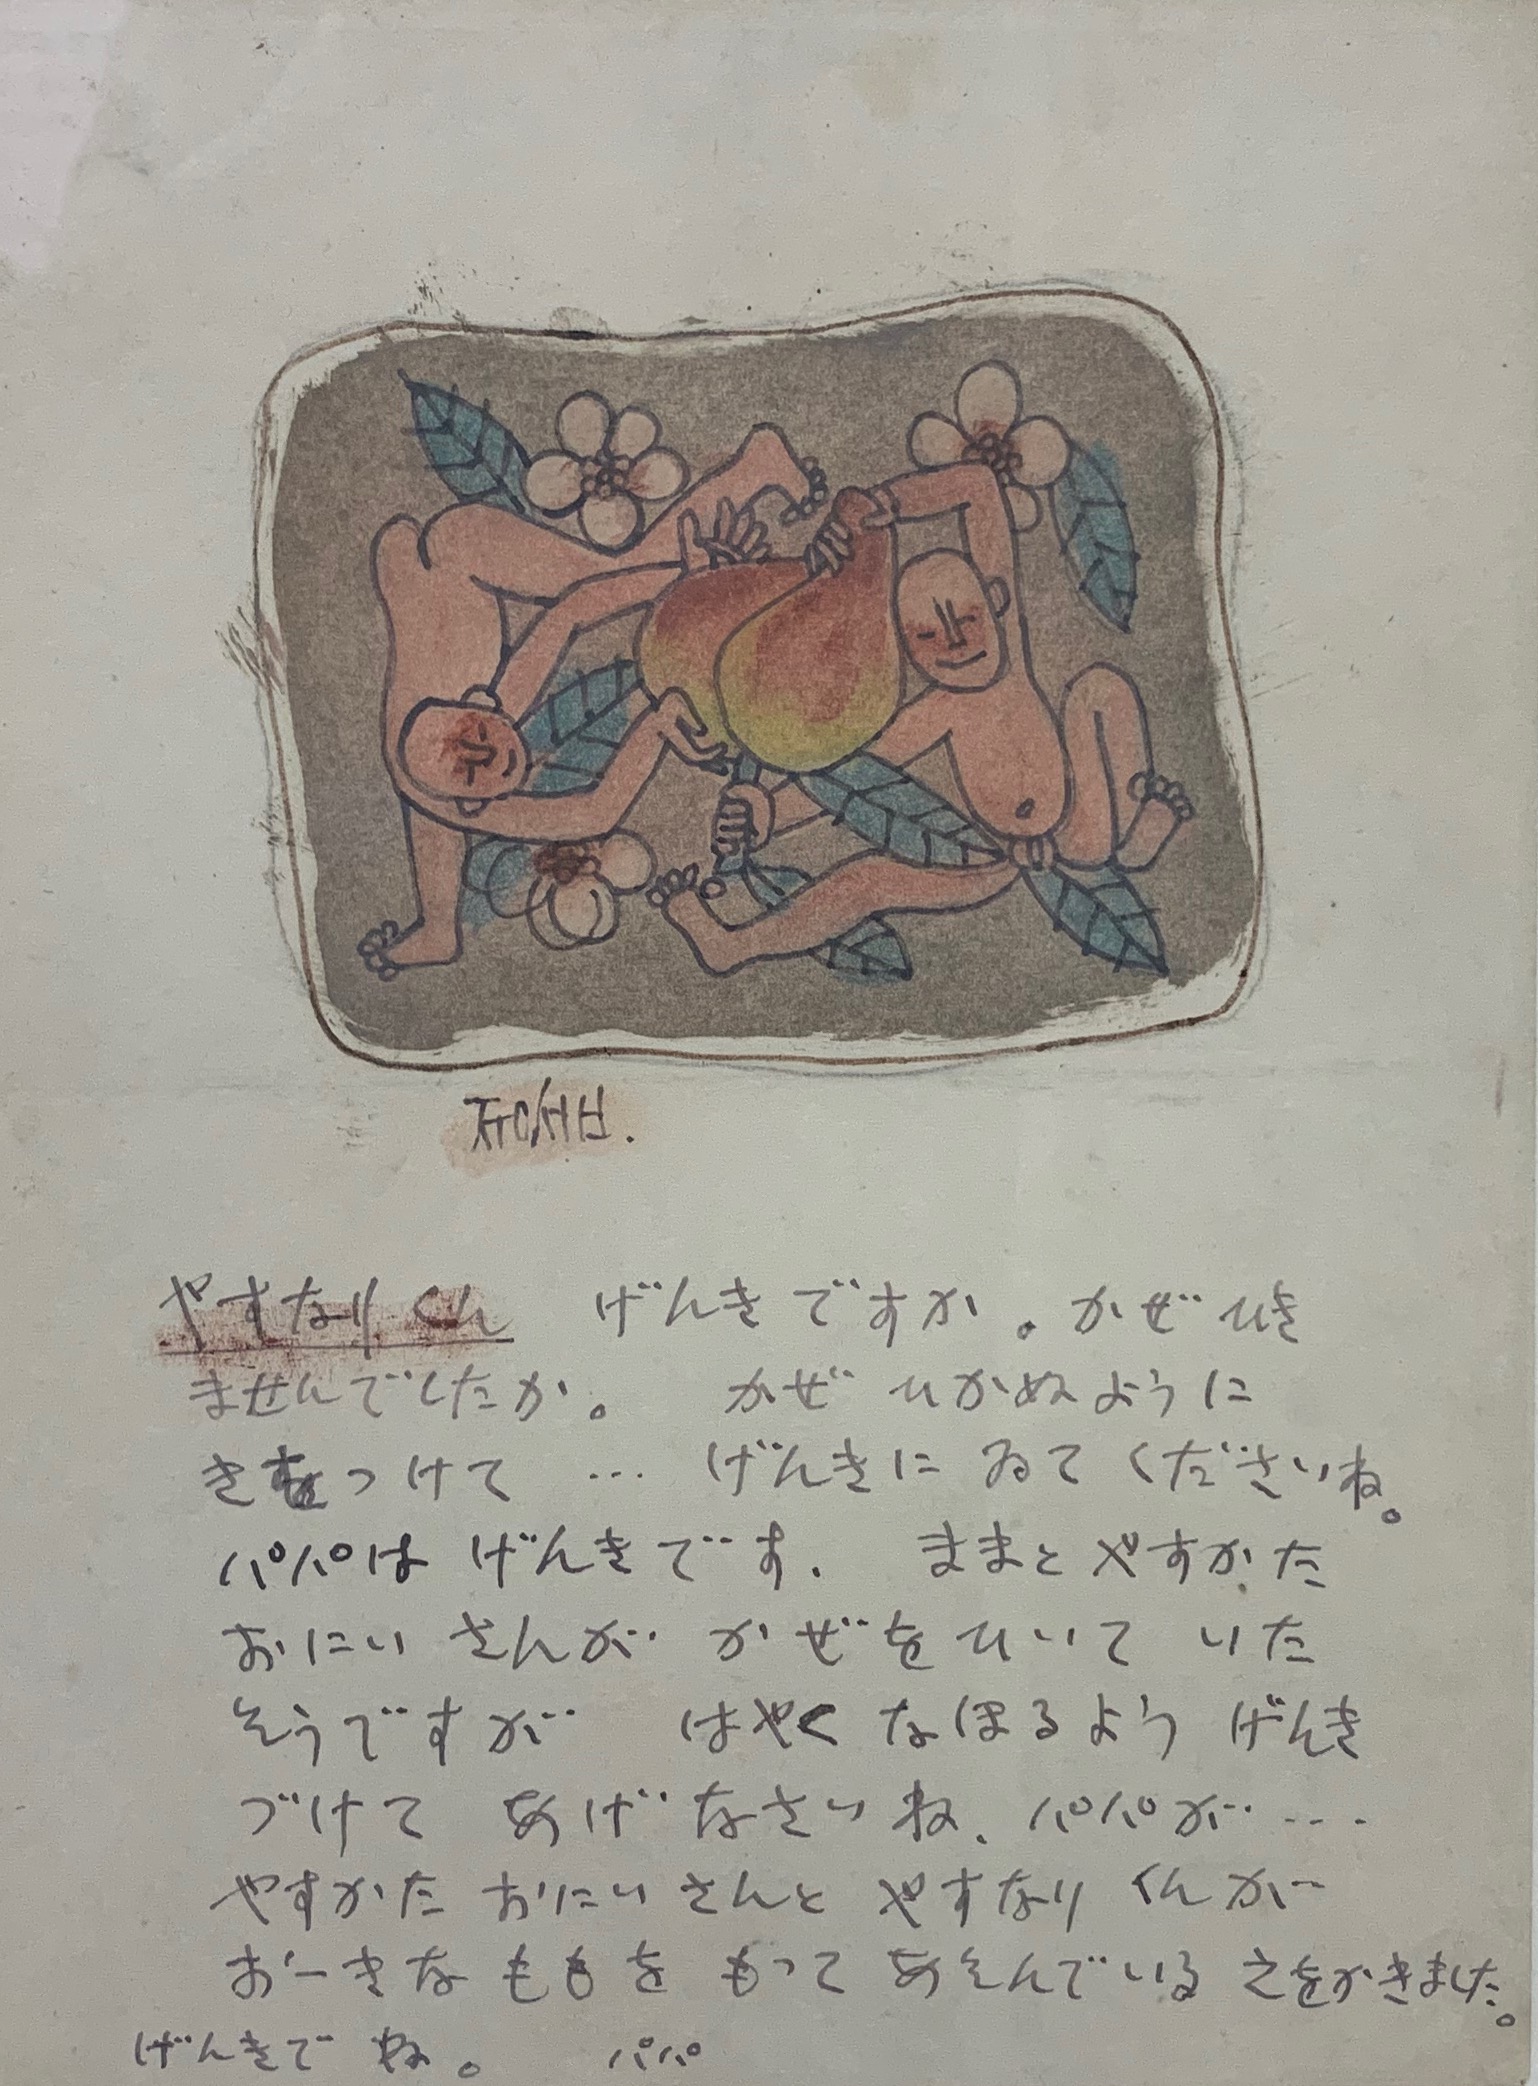 ㅈㅜㅇㅅㅓㅂ.
やすなりくん げんきですか。かぜひき
ませんでしたか。 かぜ ひかぬように
きをつけて … げんきに ゐて くださいね。
パパは げんきです. ままと やすかた
おにい さんが かぜをひいて いた
そうですが はやく なほるよう げんき
づけて あげ なさいね. パパが…
やすかた おにい さんと やすなり くんが
おーきな ももを もって あそんでいる えをかきました。
げんきで ね。 パパ